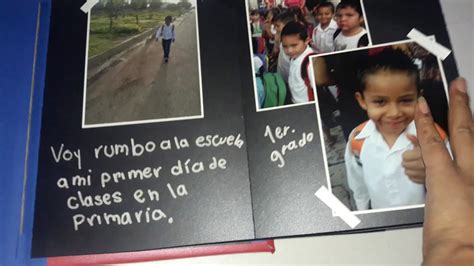 Voy rumbo a la escuela
a mi primer día de
clases en la
Primaria.
1er.
grado